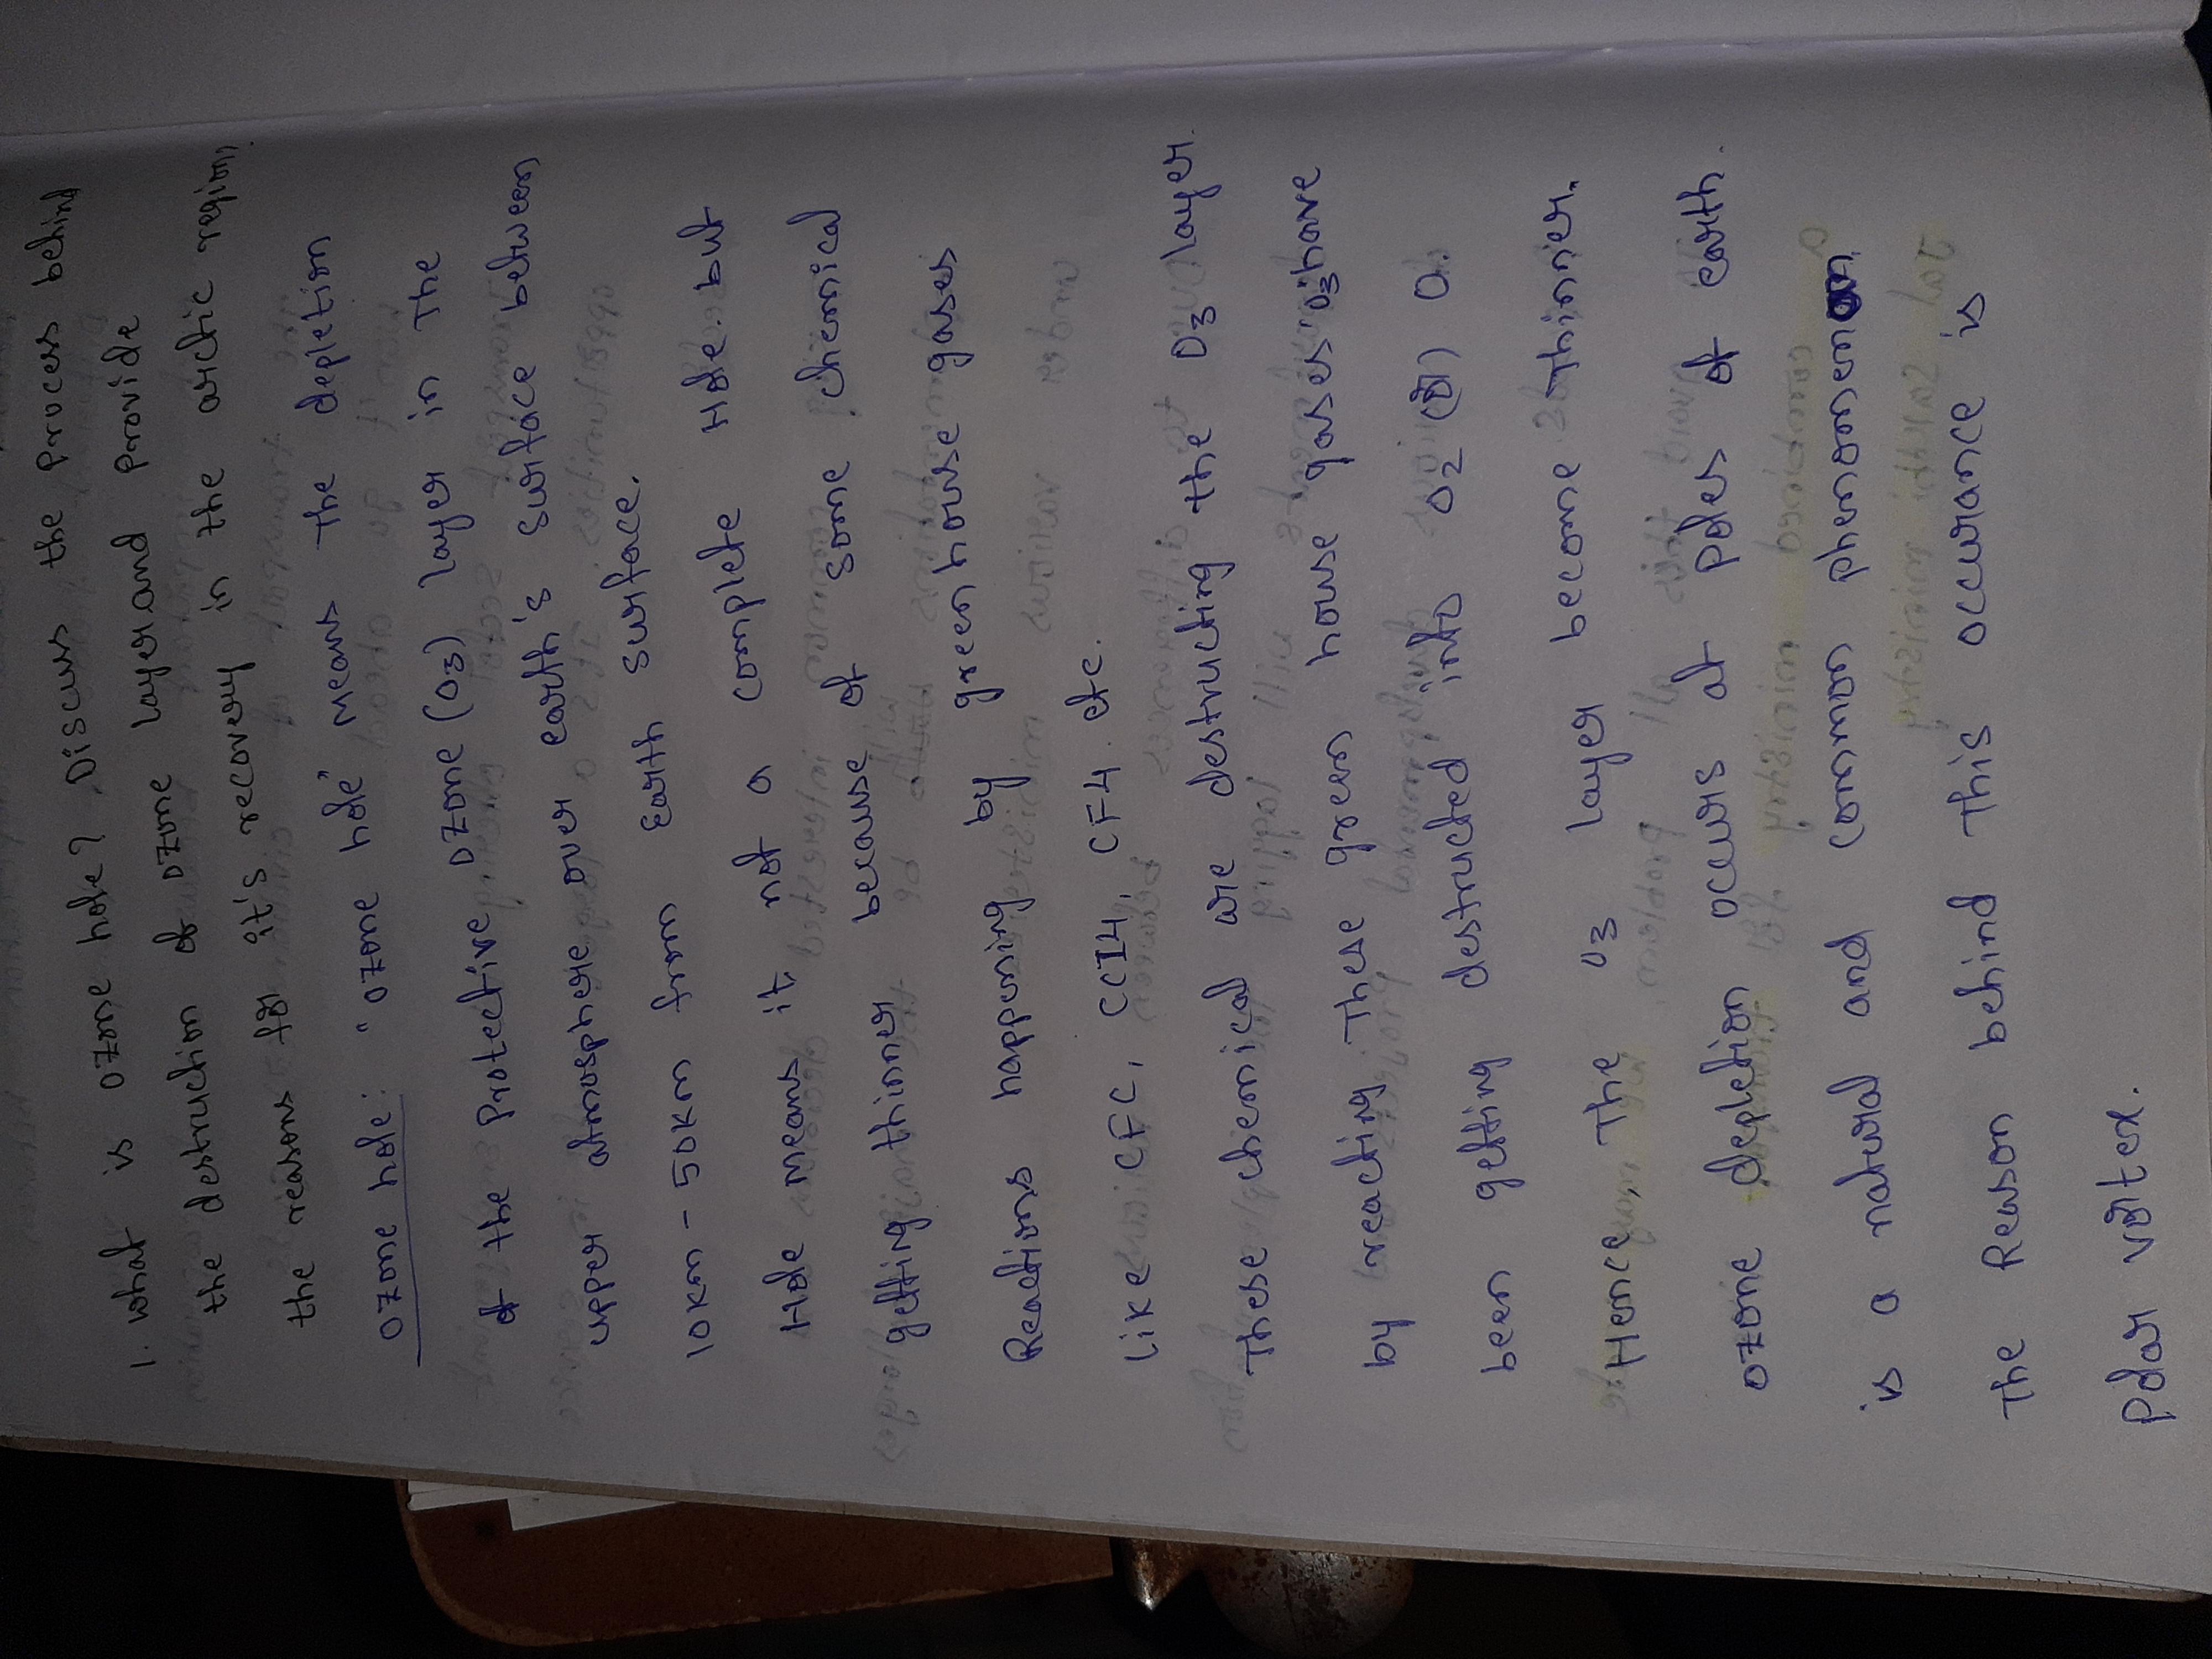 1. what is ozone hole? Discuss the process behind
the destruction of ozone layer and provide
the reasons for it's recovery in the arctic region.
ozone hole: "ozone hole" means the depletion
of the protective ozone (O3) layer in the
upper atmosphere over earth's surface between
10km - 50km from Earth surface.
Hole means it, not a complete Hole. but
getting thinner because of some chemical
Reactions happuning by green house gases
Like CFC, CCl4, CF4 etc.
These chemical are destructing the O3 layer
by reacting These green house gases. O3 have
been getting destructed into O2 (&) O.
Hence, The O3 layer become Thinner.
ozone depletion occurs at poles of earth.
is a natural and common phenomenon
The Reason behind this occurance is
Polar vortex.